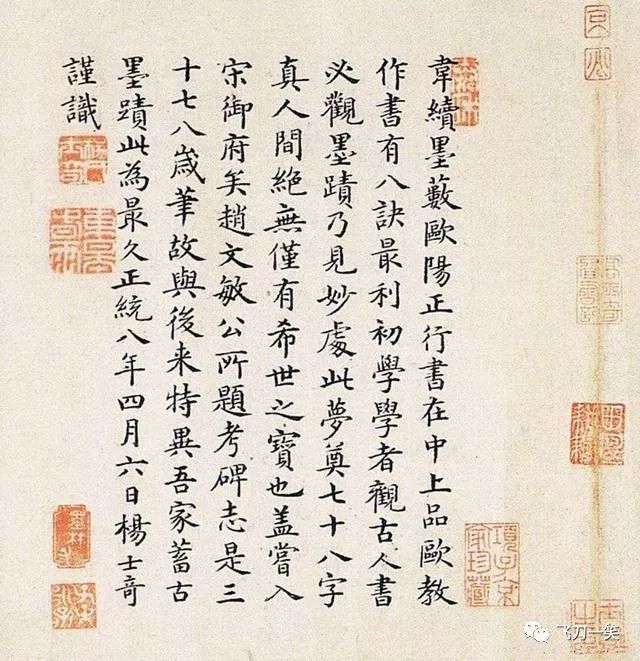 韋續墨藪歐陽正行書在中上品歐教
作書有八訣最利初學學者觀古人書
必觀墨蹟乃見妙處此夢奠七十八字
真人間絕無僅有希世之寶也盖嘗入
宋御府矣趙文敏公所題考碑志是三
十七八歲筆故與後来特異吾家蓄古
墨蹟此為最久正統八年四月六日楊士奇
謹識
項子京
家珍藏
墨林
飞刀一笑